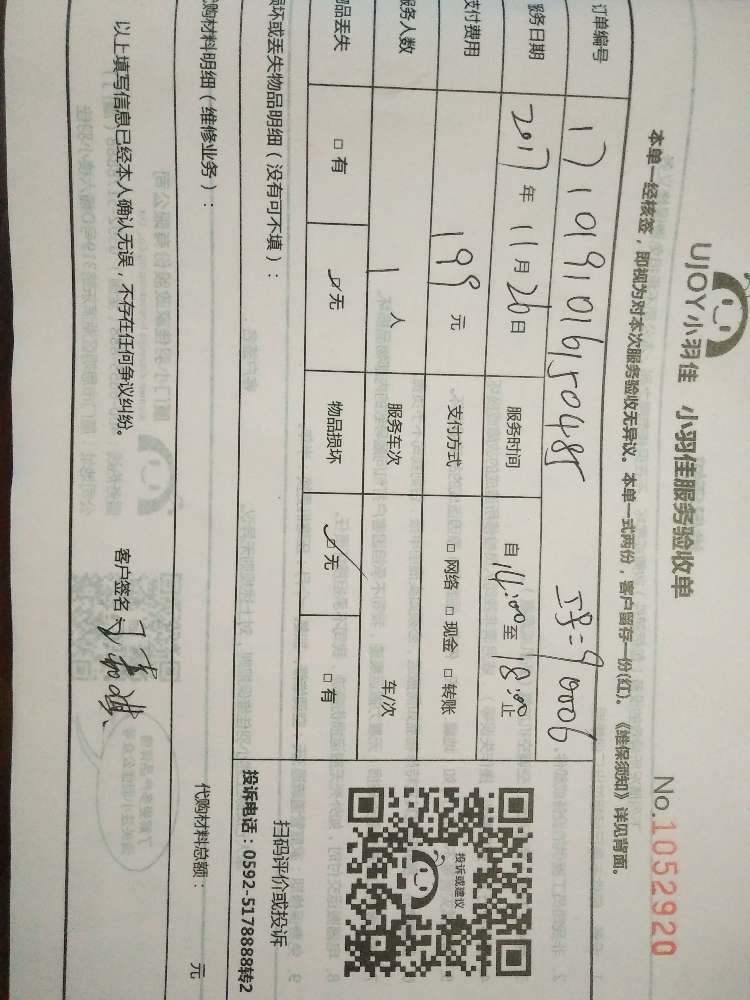 UJOY小羽佳 小羽佳服务验收单 No.1052920
本单一经核签，即视为对本次服务验收无异议。本单一式两份，客户留存一份(红)。《维保须知》详见背面。
订单编号 17101910161505485 工号=90006
服务日期 2017年11月26日 服务时间 自14:00至18:00止
支付费用 199元 支付方式 □网络 □现金 □转账
服务人数 1人 服务车次 车/次
物品丢失 □有 ☑无 物品损坏 ☑无 □有
投诉或建议
扫码评价或投诉
投诉电话：0592-5178888转2
损坏或丢失物品明细（没有可不填）：
代购材料明细（维修业务）： 代购材料总额： 元
以上填写信息已经本人确认无误，不存在任何争议纠纷。 客户签名：